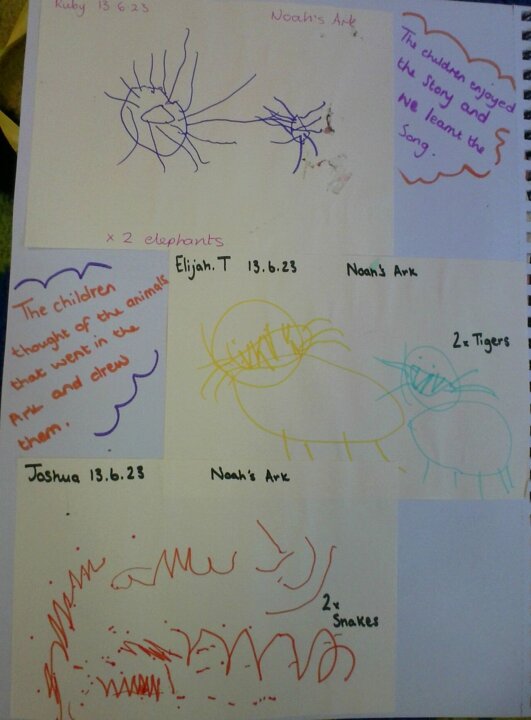 Ruby 13.6.23
Noah's Ark
The children enjoyed
the story and
we learnt the
song.
x 2 elephants
Elijah.T 13.6.23
Noah's Ark
The children
thought of the animals
that went in the
Ark and drew
them.
2x Tigers
Joshua 13.6.23
Noah's Ark
2x
Snakes